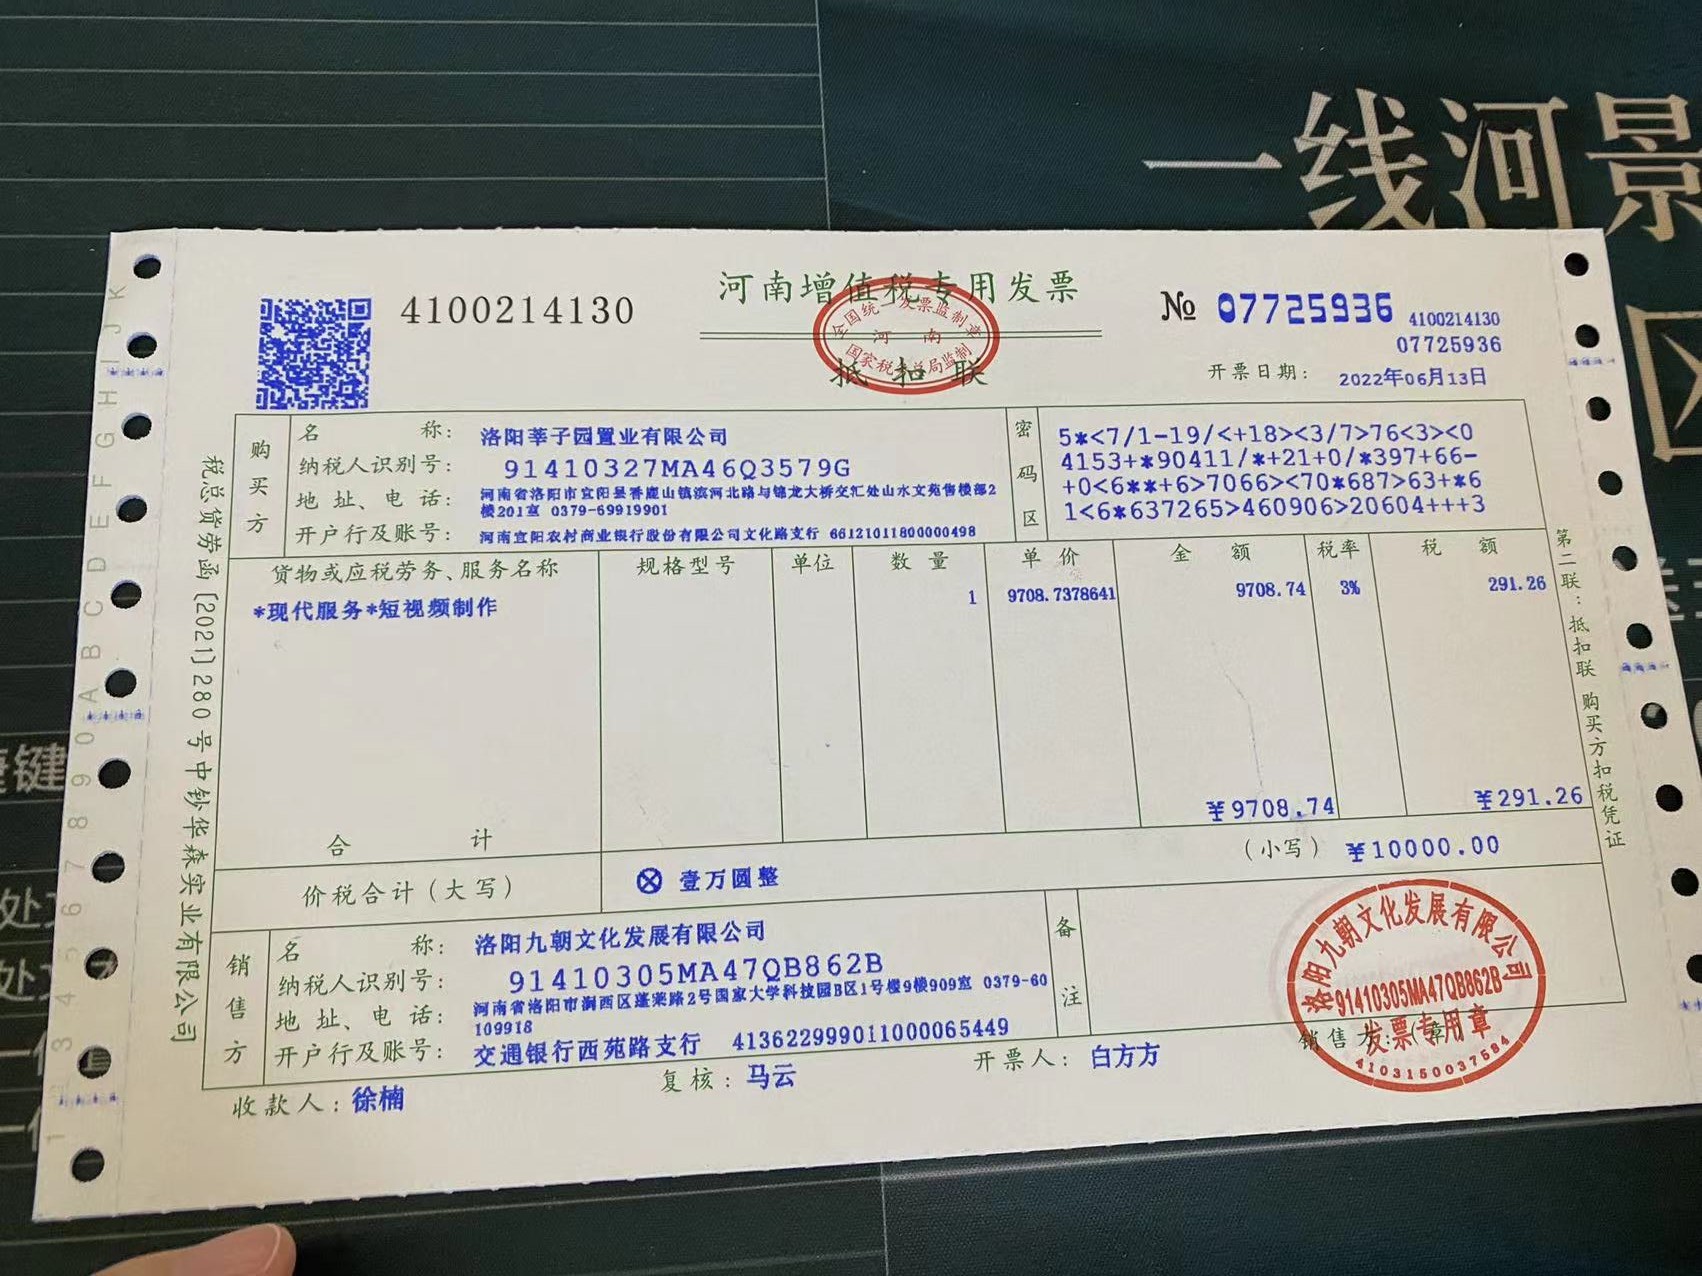 一线河景
河南增值税专用发票
全国统一发票监制章
河南
国家税务总局监制
抵扣联
4100214130
№ 07725936
4100214130
07725936
开票日期: 2022年06月13日
购买方
名称: 洛阳莘子园置业有限公司
纳税人识别号: 91410327MA46Q3579G
地址、电话: 河南省洛阳市宜阳县香鹿山镇滨河北路与锦龙大桥交汇处山水文苑售楼部2
楼201室 0379-69919901
开户行及账号: 河南宜阳农村商业银行股份有限公司文化路支行 66121011800000498
密码区
5*<7/1-19/<+18><3/7>76<3><0
4153+*90411/*+21+0/*397+66-
+0<6**+6>7066><70*687>63+*6
1<6*637265>460906>20604+++3
货物或应税劳务、服务名称 规格型号 单位 数量 单价 金额 税率 税额
*现代服务*短视频制作 1 9708.7378641 9708.74 3% 291.26
合计 ¥9708.74 ¥291.26
价税合计(大写) ⊗ 壹万圆整 (小写) ¥10000.00
销售方
名称: 洛阳九朝文化发展有限公司
纳税人识别号: 91410305MA47QB862B
地址、电话: 河南省洛阳市涧西区蓬莱路2号国家大学科技园B区1号楼9楼909室 0379-60
109918
开户行及账号: 交通银行西苑路支行 413622999011000065449
备注
收款人: 徐楠 复核: 马云 开票人: 白方方 销售方:(章)
洛阳九朝文化发展有限公司
91410305MA47QB862B
发票专用章
4103150037584
税总货劳函[2021]280号中钞华森实业有限公司
第二联:抵扣联 购买方扣税凭证
1 2 3 4 5 6 7 8 9 0 A B C D E F G H I J K